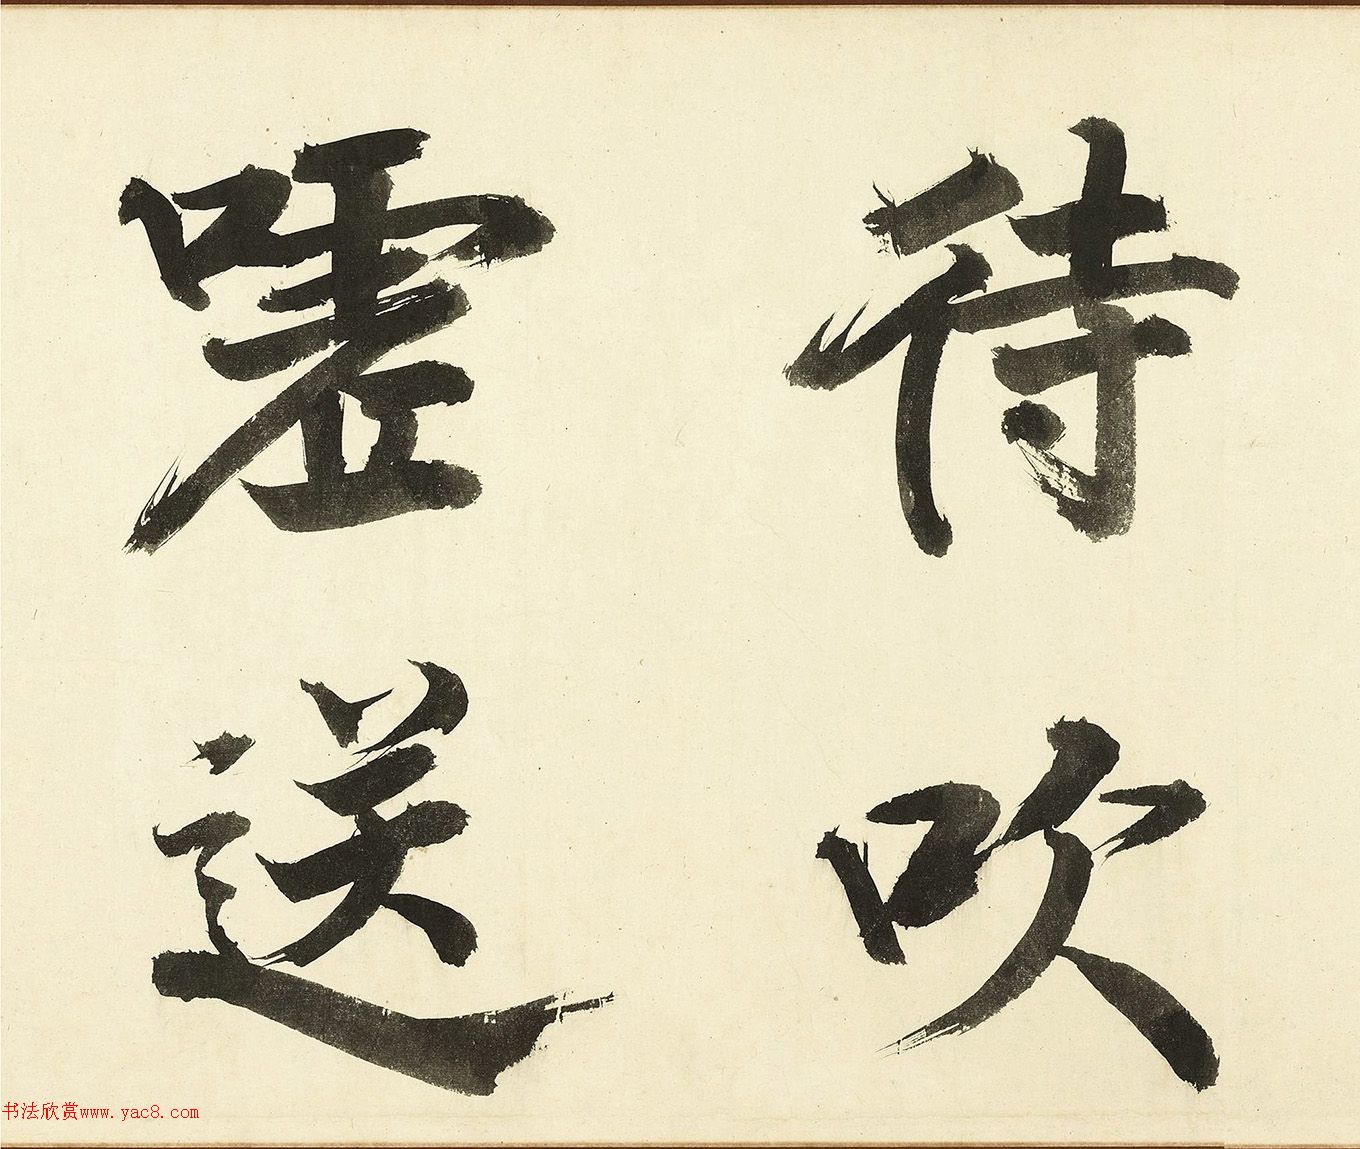 待吹
嘘送
书法欣赏www.yac8.com